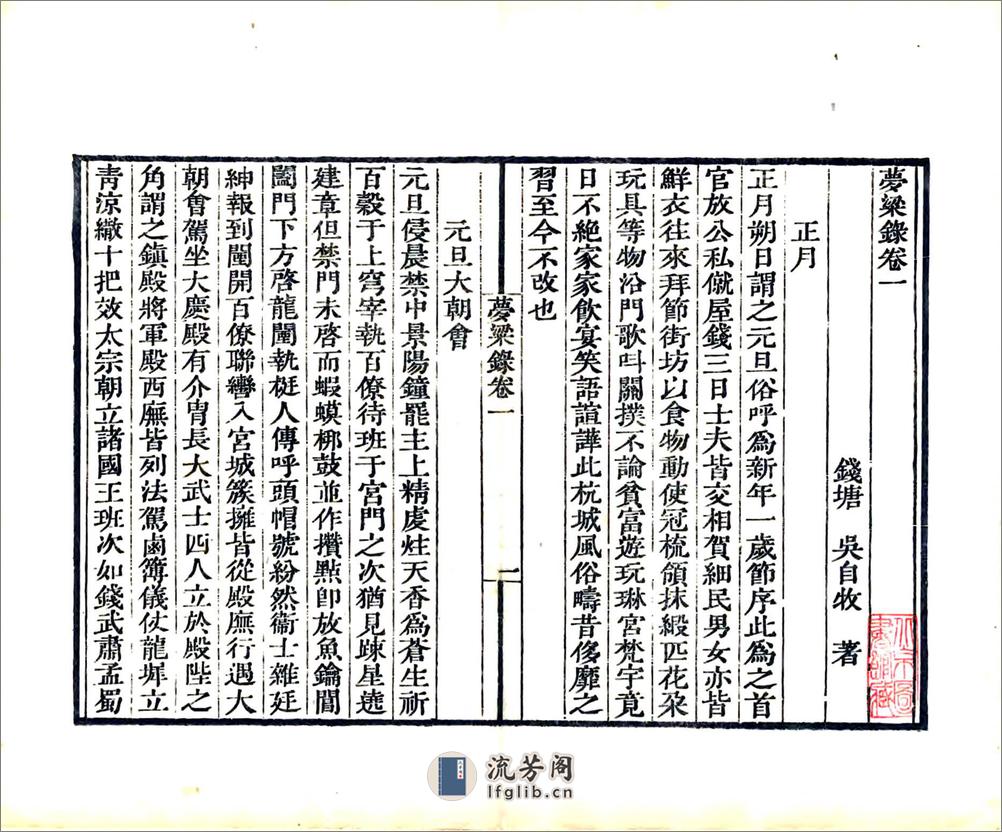 夢粱錄卷一
錢塘 吳自牧 著
正月
正月朔日謂之元旦俗呼爲新年一歲節序此爲之首
官放公私僦屋錢三日士夫皆交相賀細民男女亦皆
鮮衣往來拜節街坊以食物動使冠梳領抹緞匹花朶
玩具等物沿門歌呌關撲不論貧富遊玩琳宮梵宇竟
日不絕家家飮宴笑語諠譁此杭城風俗疇昔侈靡之
習至今不改也
夢粱錄卷一
一
元旦大朝會
元旦侵晨禁中景陽鐘罷主上精虔炷天香爲蒼生祈
百穀于上穹宰執百僚待班于宮門之次猶見疎星遶
建章但禁門未啓而蝦蟆梆鼓並作攢點卽放魚鑰閶
闔門下方啓龍闈執梃人傳呼頭帽號紛然衞士雜廷
紳報到闈開百僚聯轡入宮城簇擁皆從殿廡行遇大
朝會駕坐大慶殿有介冑長大武士四人立於殿陛之
角謂之鎭殿將軍殿西廡皆列法駕鹵簿儀仗龍墀立
靑涼繖十把效太宗朝立諸國王班次如錢武肅孟蜀
流芳阁
lfglib.cn